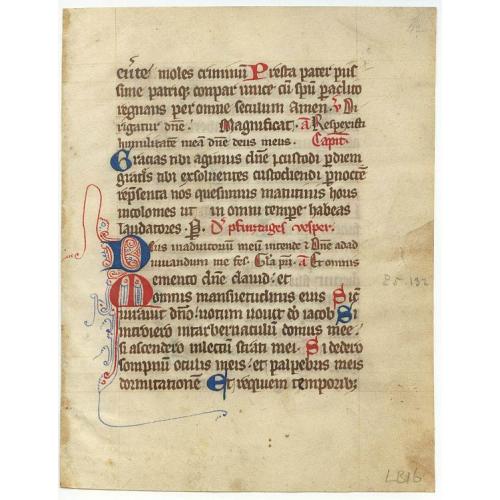 cente moles criminum Presta pater piis
sime patriq; conpar unice cu spu paclito
regnans per omne seculum Amen. v Di
rigatur dne. Magnificat. a Respexisti
humilitate mea dne deus meus. Capit
Gracias tibi agimus dne custodi p diem
gratis tibi exsolventes custodiendi p nocte
repsenta nos quesumus matutinis horis
incolomes ut in omni tempe habeas
laudatores. vesper.
Deus inadiutoriu meu intende Dne adad
iuvandum me fes. Gla pri. a Et omnis
Memento dne david: et
omnis mansuetudinis eius Sic
iuravit dno: votum vovit do iacob Si
introiero in tabernaculum domus mee:
si ascendero in lectum strati mei. Si dedero
sompnum oculis meis: et palpebris meis
dormitatione Et requiem temporib;
Ps. 132
LB16